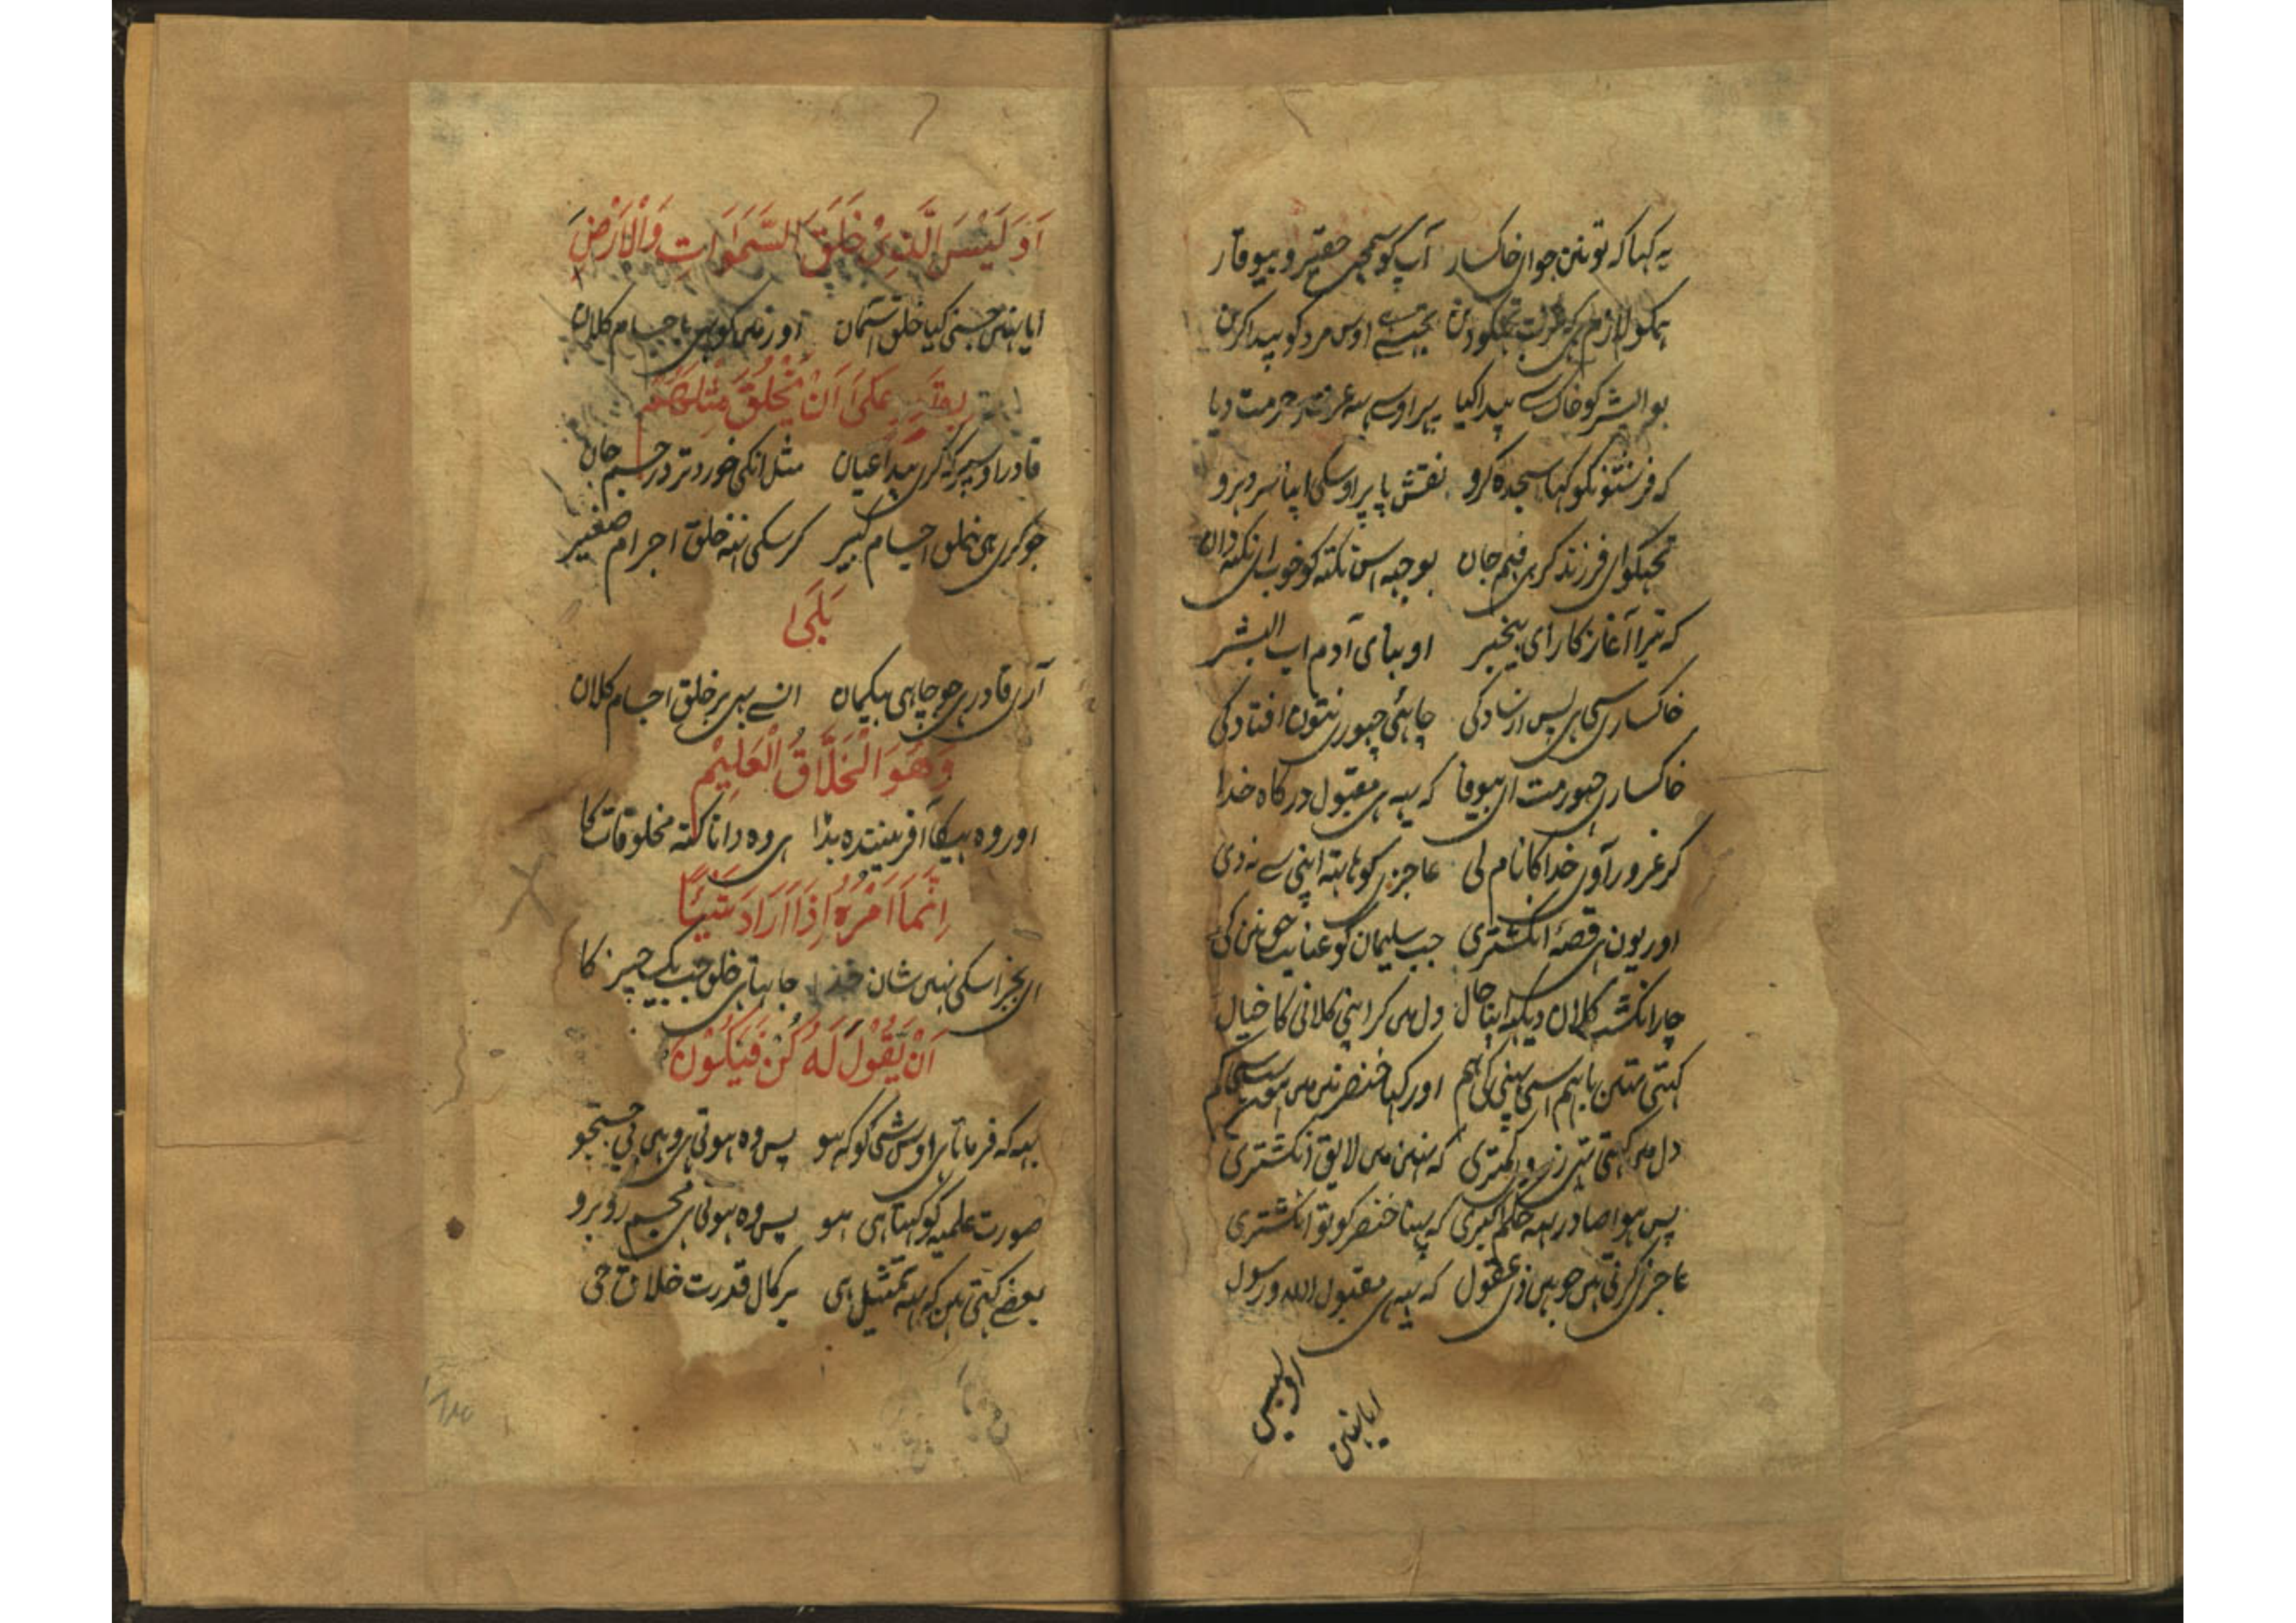 یہ کہا کہ تو نین جوان خاکسار آپ کو سمجھی حقیر و بیوقار
ہمکو لازم ہی کہ عزت تجکو دین تجسے اوس مرد کو پیدا کرین
بو البشر کو خاک سے پیدا کیا پہر اوسے یہ عزت و حرمت دیا
کہ فرشتونکو کہا سجدہ کرو نقش پا پر اوسکی اپنا سر دہرو
تجہکو ای فرزند کر ہی فہم جان بوجہہ اس نکتہ کو خوب ای نکتہ دان
کہ تیرا آغاز کار ای بیخبر او بنای آدم اب البشر
خاکساری سی ہی پس ارسادکی چاہئی چہوری نتون افتادکی
خاکساری چہور مت ای بیوفا کہ یہہ ہی مقبول درکاہ خدا
کر غرور آوی خدا کا نام لی عاجزی کو ہاتہہ اپنی سے ندی
اور یون ہی قصۂ انکشتری جب سلیمان کو عنایت حق نین کی
چار انکشت کلان دیکہہ اپنا حال دل مین کر اپنی کلانی کا خیال
کہتی تہین باہم اسی پہنی کی ہم اور کہا خنصر نین مین ہون سب سی کم
دل مین کہتی تہی ز روی کمتری کہ نہین مین لایق انکشتری
پس ہوا صادر یہہ حکم اکبری کہ پہنا خنصر کو تو انکشتری
عاجزی کرتی ہین جو ہین ذی عقول کہ یہہ ہی مقبول اللہ و رسول
اولیس
ایا نہین
اَوَ لَیْسَ الَّذِیْ خَلَقَ السَّمٰوَاتِ وَالْاَرْضَ
ایا نہین جسنی کیا خلق آسمان اور زمین کو ہین با جسام کلان
بِقٰدِرٍ عَلٰی اَنْ یَّخْلُقَ مِثْلَهُمْ
قادر اوسپر کہ کری پیدا عیان مثل انکی خوردتر در جسم جان
جو کری ہی خلق اجسام کبیر کرسکی نہ خلق اجرام صغیر
بَلٰی
آری قادر ہی جو چاہی بیکمان انسے بہی بر خلق اجسام کلان
وَهُوَ الْخَلَّاقُ الْعَلِیْمُ
اور وہ ہیکا آفرینندہ بڑا ہی وہ دانا کنہ مخلوقات کا
اِنَّمَا اَمْرُهٗ اِذَا اَرَادَ شَیْئًا
ای بجز اسکی نہین شان خدا چاہتا ہی خلق جب یک چیز کا
اَنْ یَقُوْلَ لَهٗ کُنْ فَیَکُوْنُ
یہہ کہ فرماتا ہی اوس شی کو کہ ہو پس وہ ہوتی ہی وہین بی جستجو
صورت علمیہ کو کہتا ہی ہو پس وہ ہوتی ہی مجسم روبرو
بعضے کہتی ہین کہ یہہ تمثیل ہی بر کمال قدرت خلاق حی